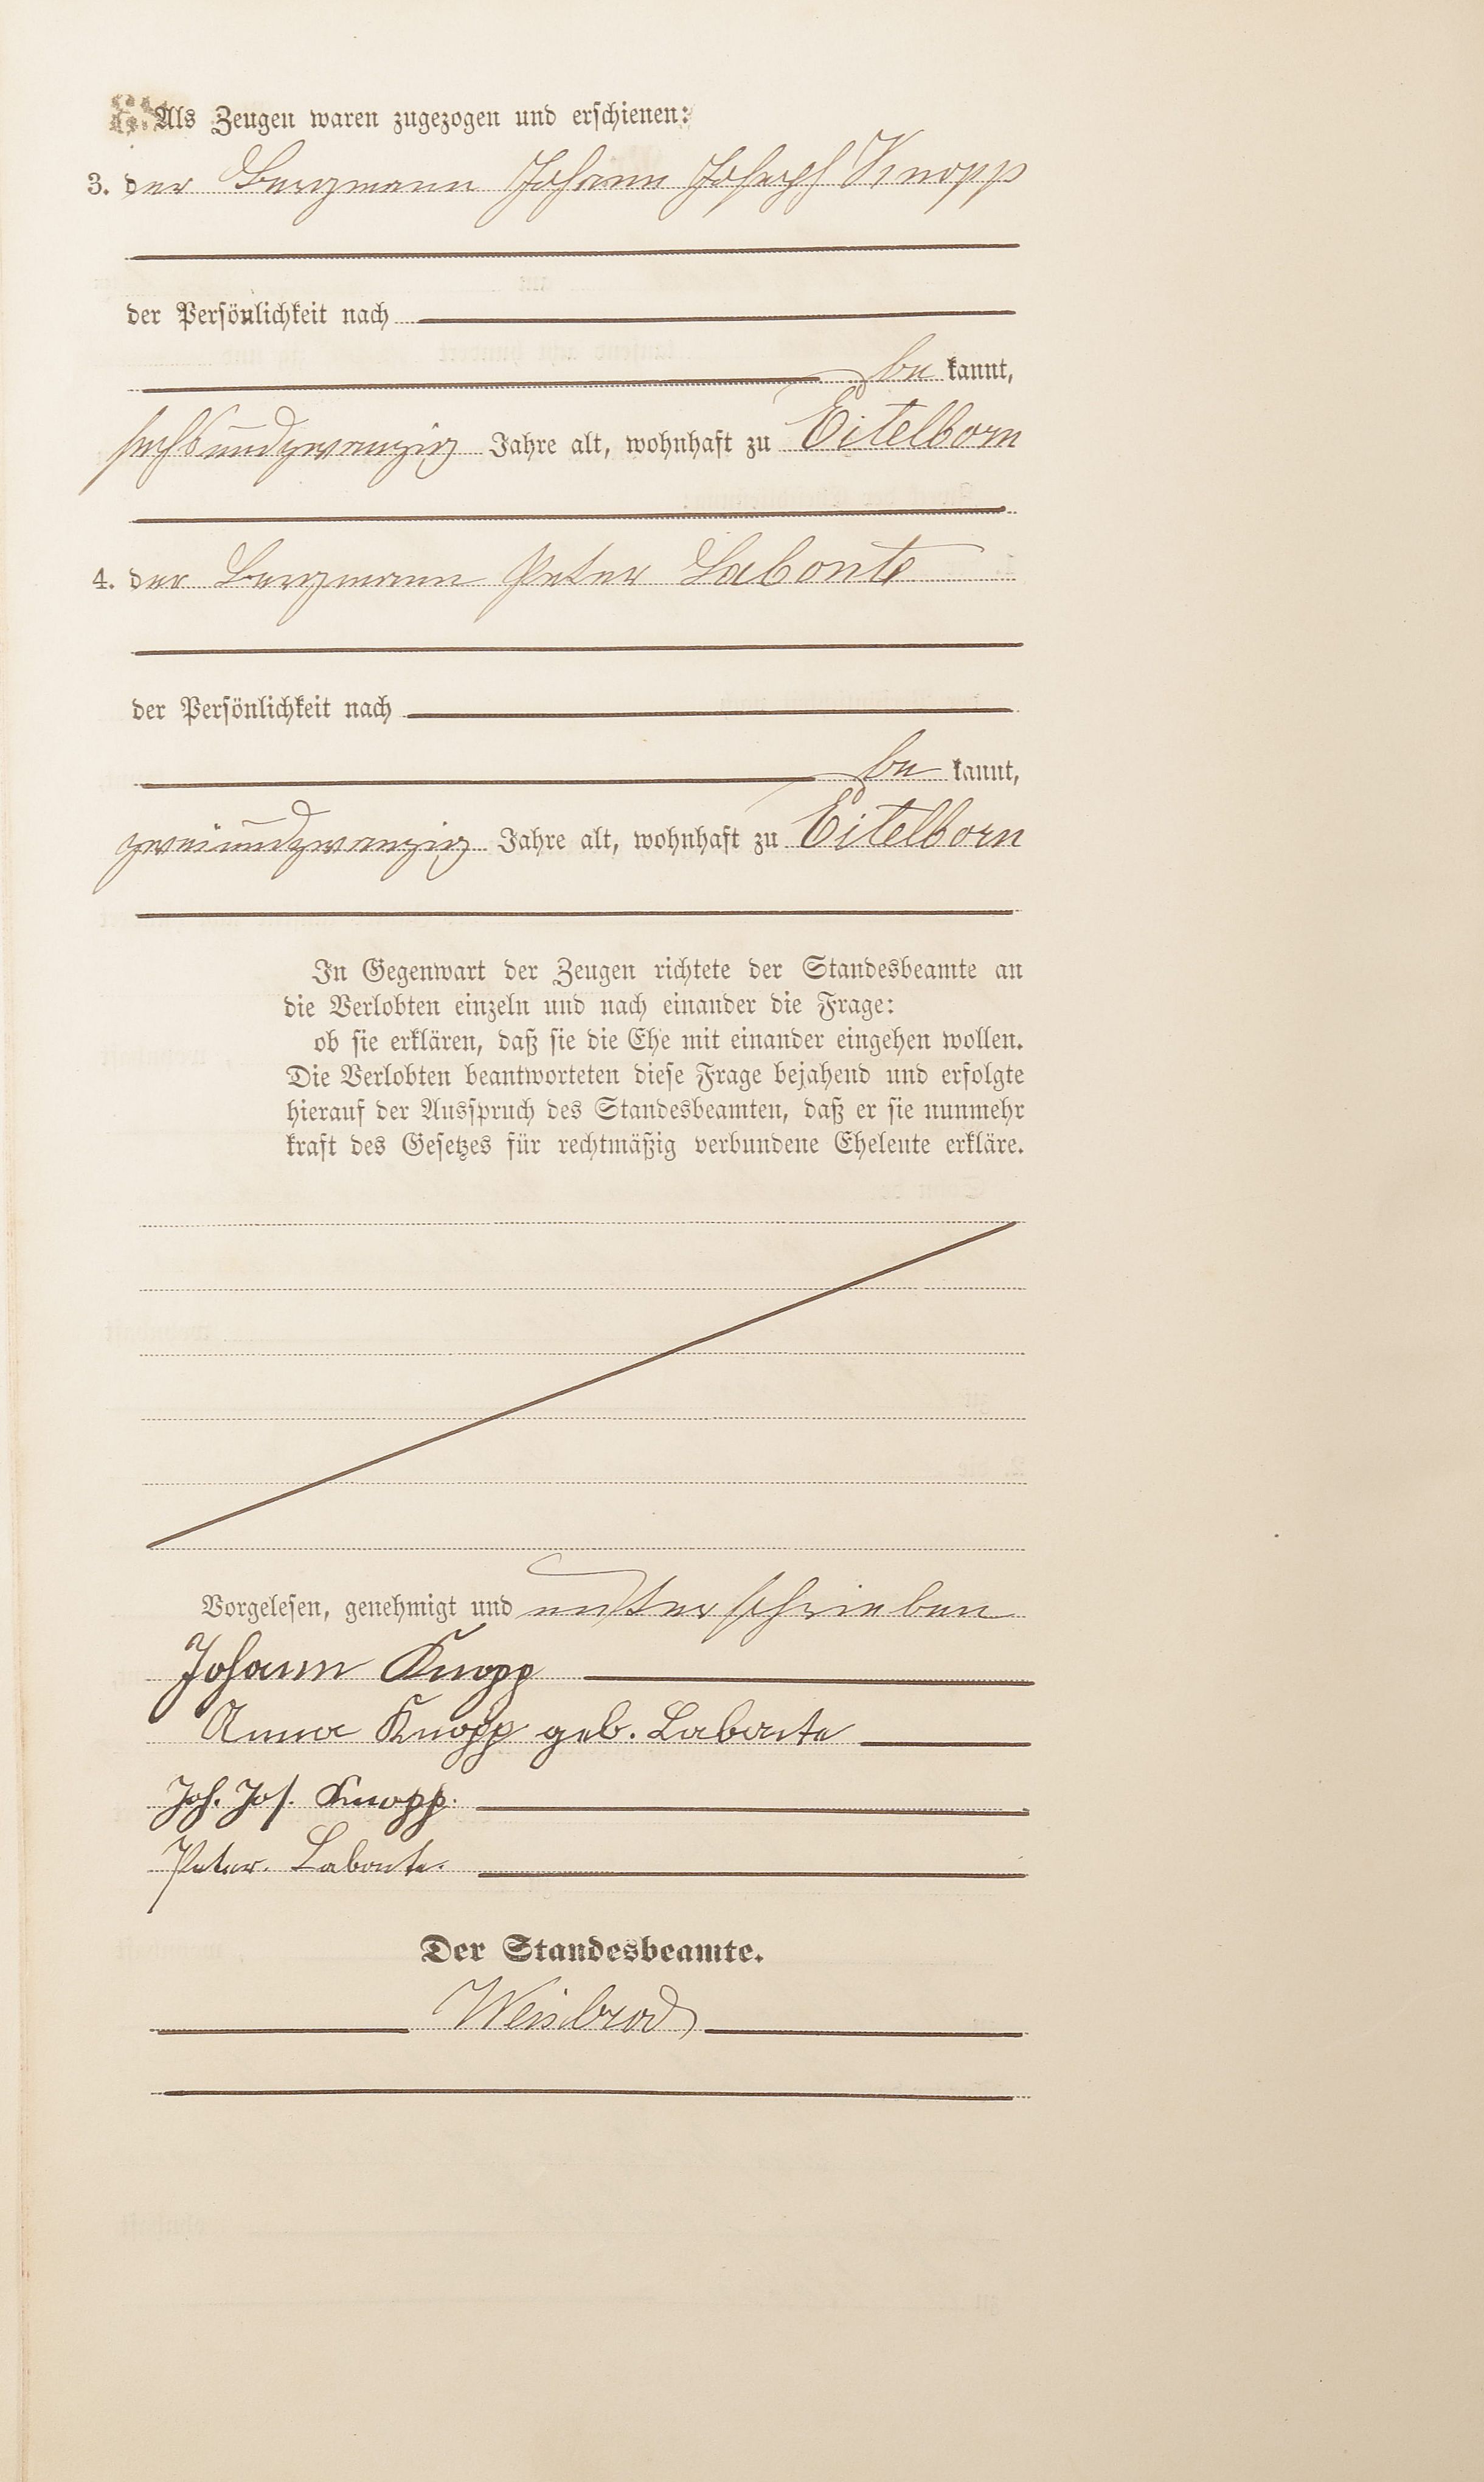 Als Zeugen waren zugezogen und erschienen:
3. der Bergmann Johann Joseph Knopp
der Persönlichkeit nach
be kannt,
sechsundzwanzig Jahre alt, wohnhaft zu Eitelborn
4. der Bergmann Peter Labonte
der Persönlichkeit nach
be kannt,
zweiundzwanzig Jahre alt, wohnhaft zu Eitelborn
In Gegenwart der Zeugen richtete der Standesbeamte an
die Verlobten einzeln und nach einander die Frage:
ob sie erklären, daß sie die Ehe mit einander eingehen wollen.
Die Verlobten beantworteten diese Frage bejahend und erfolgte
hierauf der Ausspruch des Standesbeamten, daß er sie nunmehr
kraft des Gesetzes für rechtmäßig verbundene Eheleute erkläre.
Vorgelesen, genehmigt und unterschrieben
Johann Knopp
Anna Knopp geb. Labonte
Joh. Jos. Knopp.
Peter. Labonte.
Der Standesbeamte.
Weisbrod